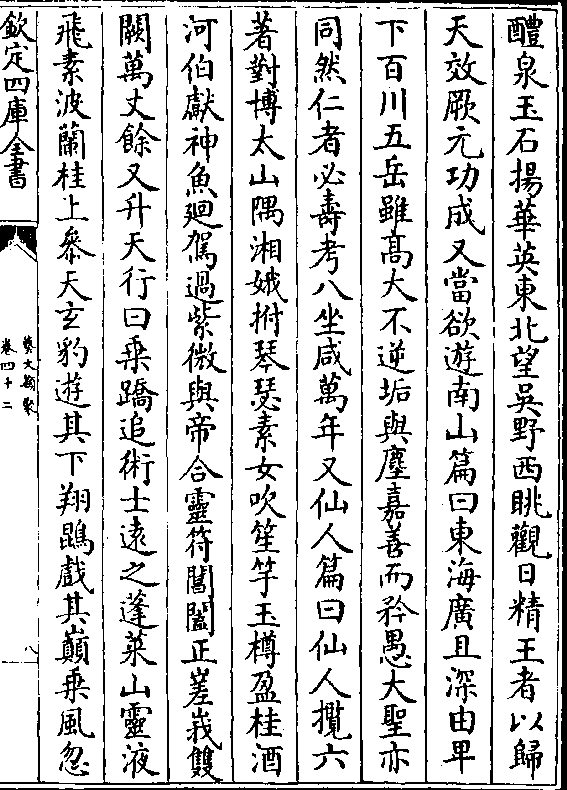 醴泉玉石揚華英東北望吳野西眺觀日精王者以歸
天效厥元功成又當欲遊南山篇曰東海廣且深由卑
下百川五岳雖髙大不逆垢與塵嘉善而矜愚大聖亦
同然仁者必壽考八坐咸萬年又仙人篇曰仙人攬六
著對博太山隅湘娥拊琴瑟素女吹笙竽玉樽盈桂酒
河伯獻神魚廻駕過紫微與帝合靈符閶闔正嵳峩雙
闕萬丈餘又升天行曰乗蹻追術士逺之蓬萊山靈液
飛素波蘭桂上叅天玄豹遊其下翔鵾戲其巔乗風忽
欽定四庫全書
藝文類聚
卷四十二
八